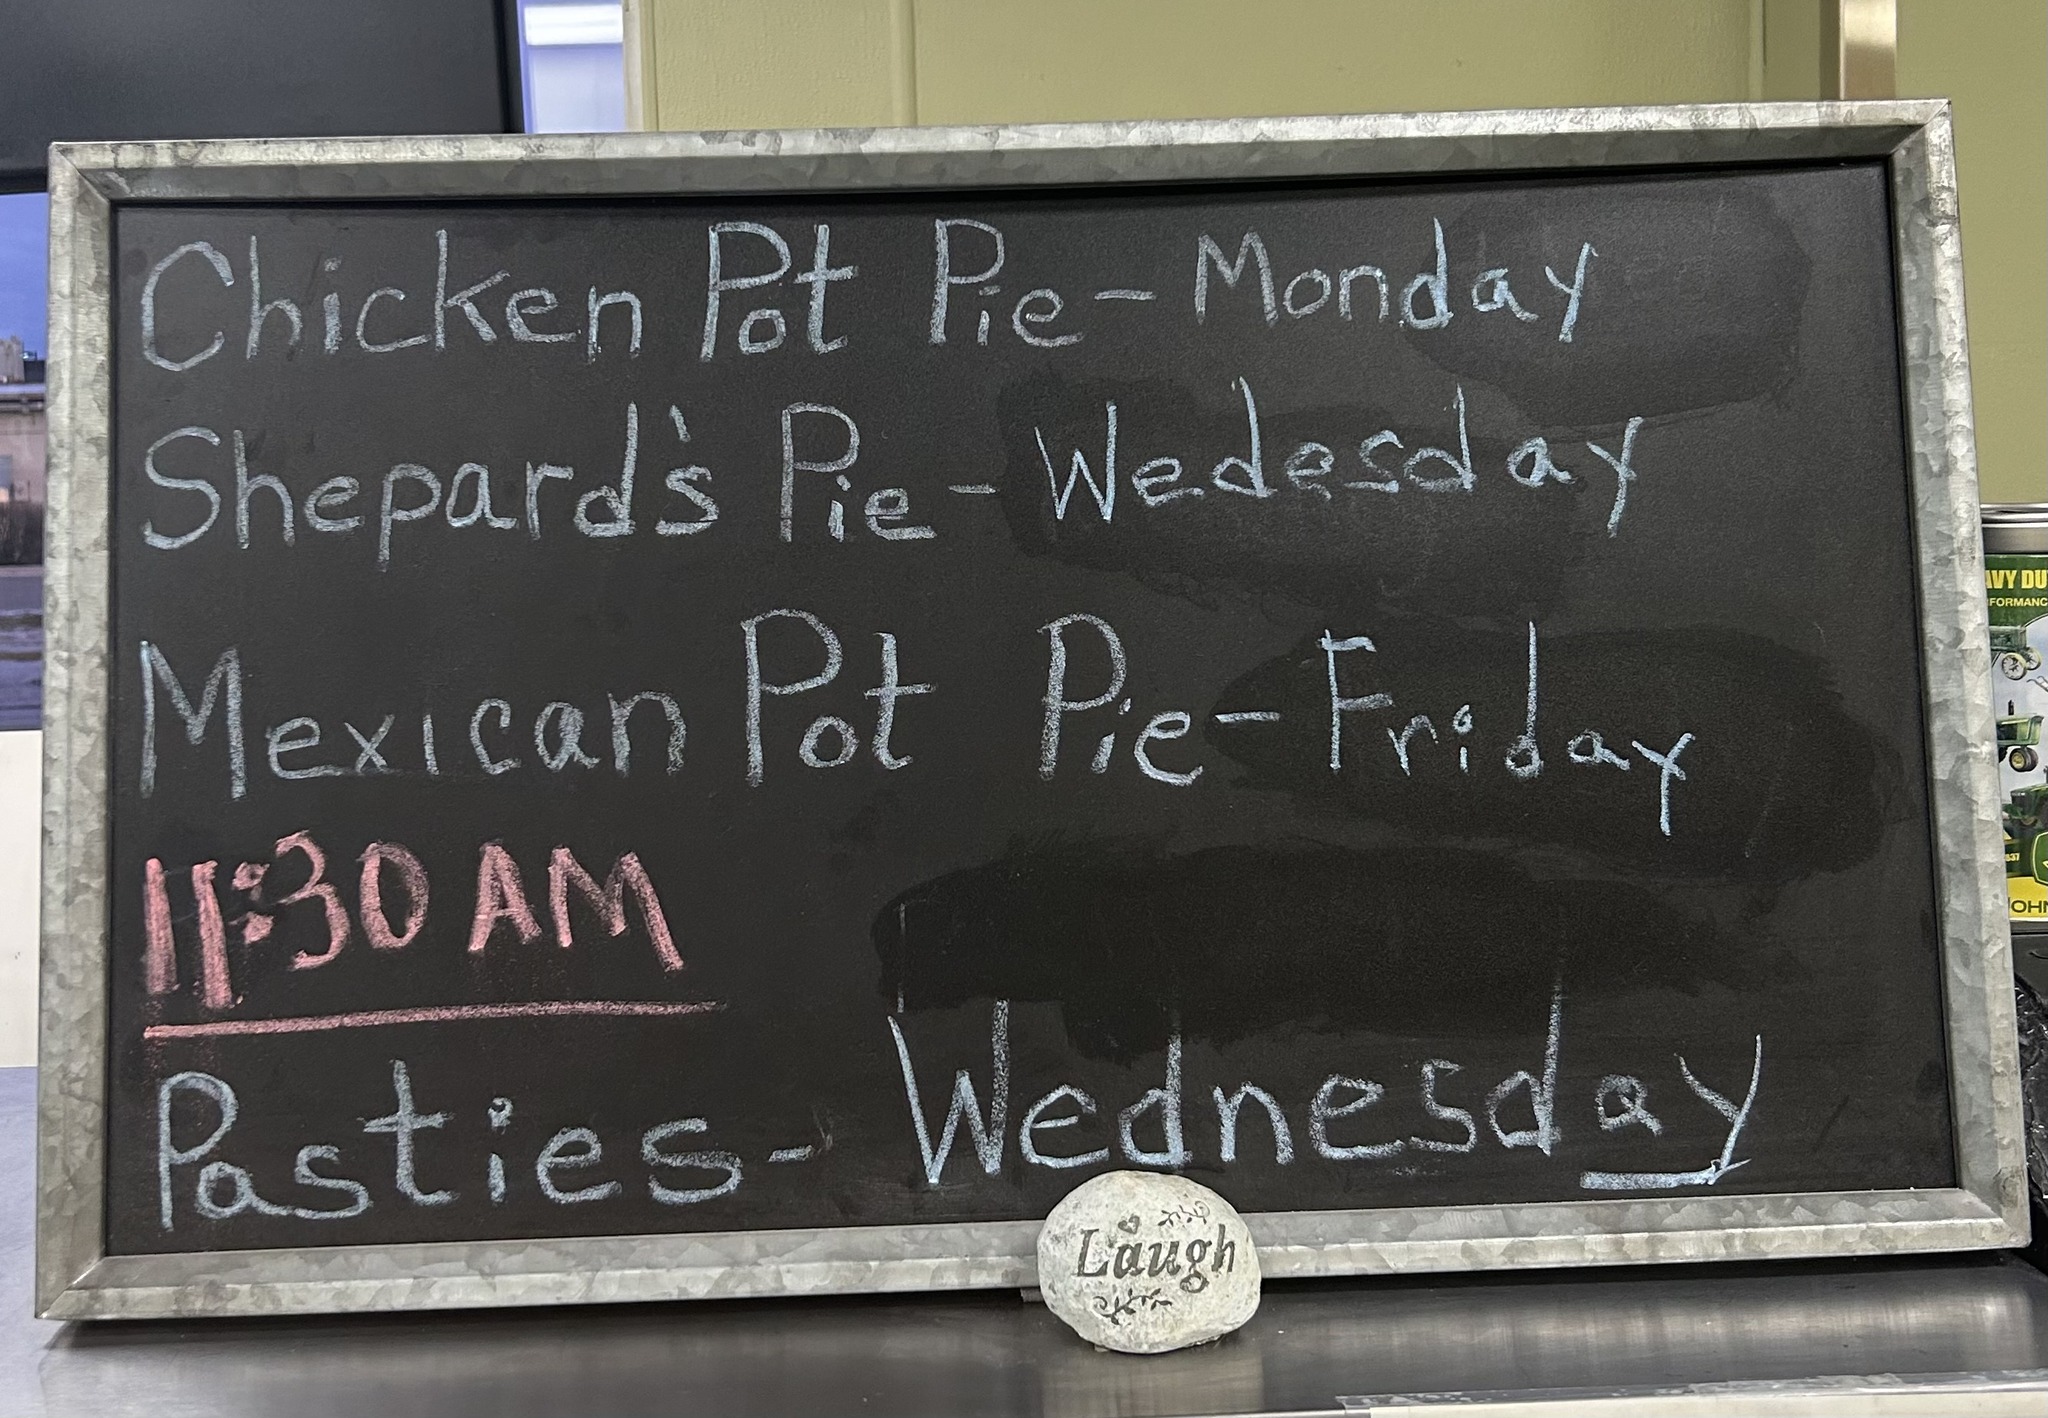 Chicken Pot Pie - Monday
Shepard's Pie - Wedesday
Mexican Pot Pie - Friday
11:30 AM
Pasties - Wednesday
Laugh
AVY DU
FORMANC
OHN